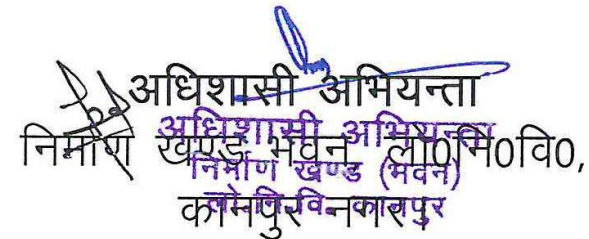 अधिशासी अभियन्ता
निर्माण खण्ड भवन लो0नि0वि0,
कानपुर नगर
अधिशासी अभियन्ता
निर्माण खण्ड (भवन)
लो.नि.वि. कानपुर